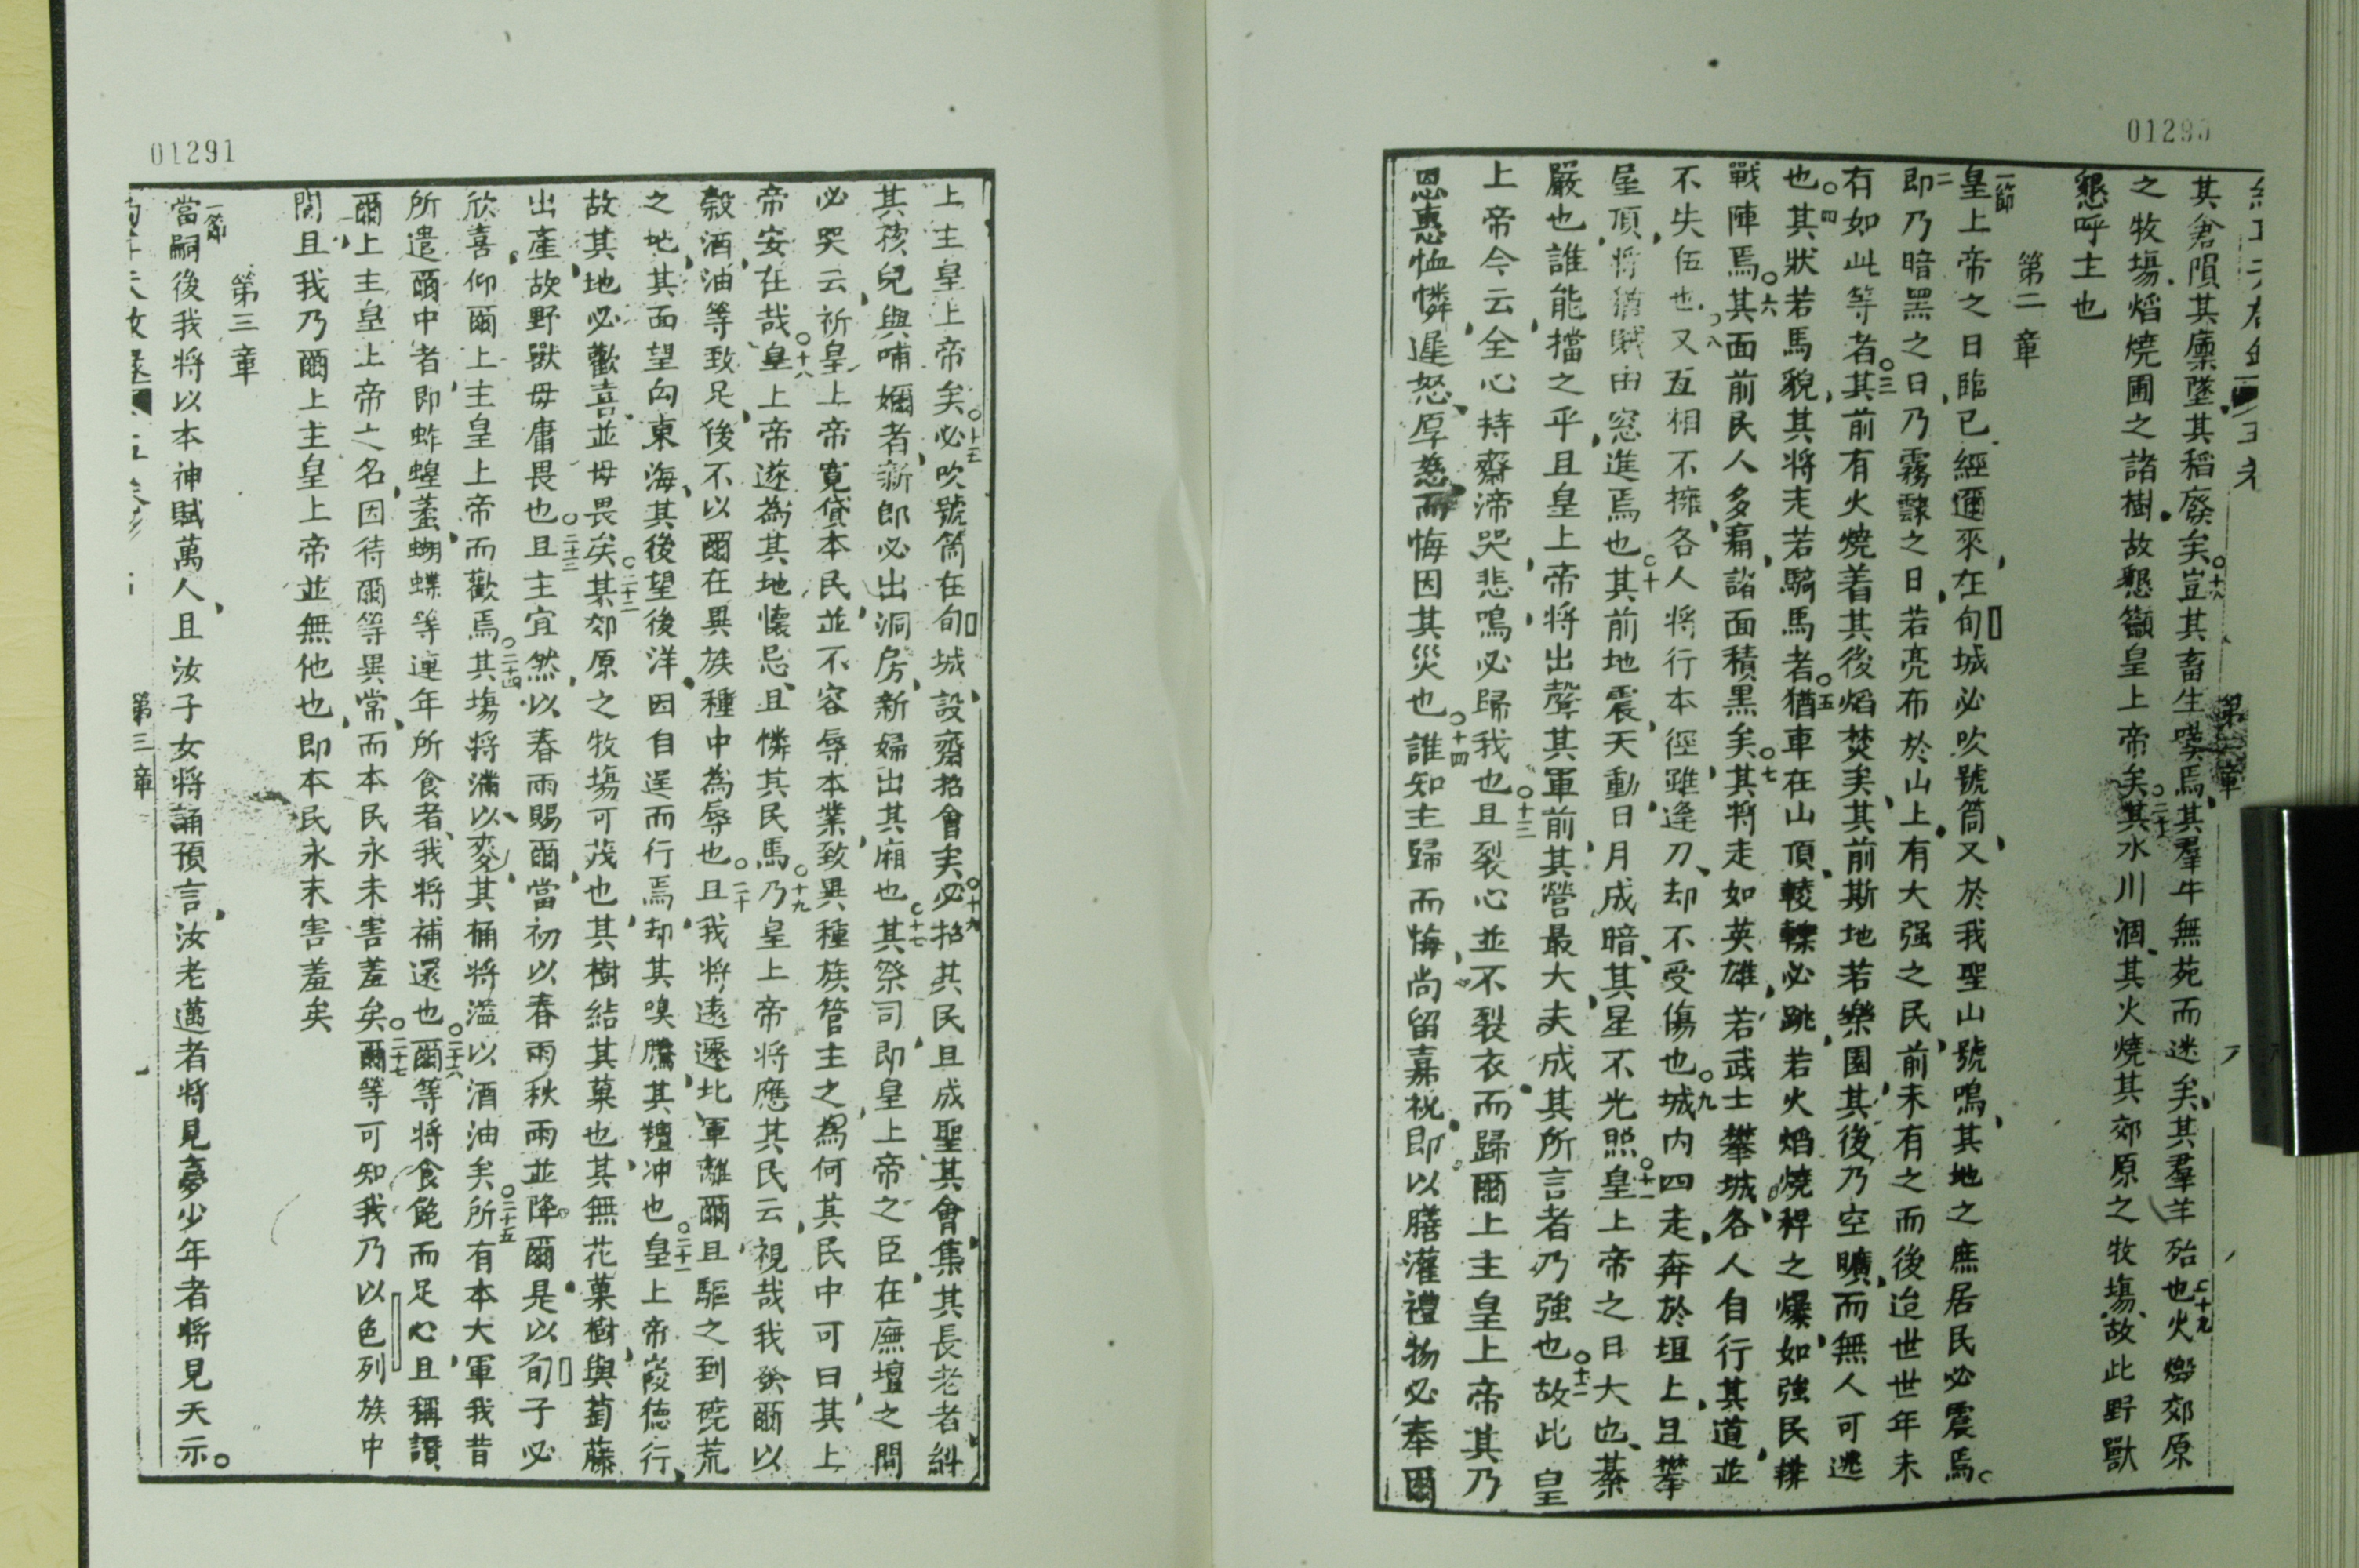 01290
其倉隕其廩墜其稻廢矣○十八豈其畜生嘆焉其羣牛無苑而迷矣其羣羊殆也○十九火燬郊原
之牧塲熖燒圃之諸樹故懇籲皇上帝矣○二十其水川涸其火燒其郊原之牧塲故此野獸
懇呼主也
第二章
一節皇上帝之日臨已經邇來在旬城必吹號筒又於我聖山號鳴其地之庶居民必震焉○
二即乃暗黑之日乃霧靆之日若亮布於山上有大强之民前未有之而後迨世世年未
有如此等者○三其前有火燒着其後熖焚矣其前斯地若樂園其後乃空曠而無人可逃
也○四其狀若馬貌其將走若騎馬者○五猶車在山頂輘轢必跳若火熖燒稈之爆如強民排
戰陣焉○六其面前民人多痛諸面積黑矣○七其將走如英雄若武士攀城各人自行其道並
不失伍也○八又互相不擁各人將行本徑雖逢刀却不受傷也○九城内四走奔於垣上且攀
屋頂將猶賊由窓進焉也○十其前地震天動日月成暗其星不光照○十一皇上帝之日大也綦
嚴也誰能擋之乎且皇上帝將出聲其軍前其營最大夫成其所言者乃強也○十二故此皇
上帝今云全心持齋渧哭悲鳴必歸我也○十三且裂心並不裂衣而歸爾上主皇上帝其乃
恩惠恤憐遲怒厚慈而悔因其災也○十四誰知主歸而悔尚留嘉祝即以膳灌禮物必奉爾
第三章
01291
上主皇上帝矣○十五必吹號筒在旬城設齋招會矣○十六必招其民且成聖其會集其長老者糾
其孩兒與哺嬭者新郎必出洞房新婦出其廂也○十七其祭司即皇上帝之臣在廡壇之間
必哭云祈皇上帝寬貸本民並不容辱本業致異種族管主之爲何其民中可曰其上
帝安在哉○十八皇上帝遂為其地懷忌且憐其民焉○十九乃皇上帝將應其民云視哉我發爾以
穀酒油等致足後不以爾在異族種中為辱也○二十且我將遠遷北軍離爾且驅之到磽荒
之地其面望向東海其後望後洋因自逞而行焉却其嗅騰其羶冲也○二十一皇上帝峻德行
故其地必歡喜並毋畏矣○二十二某郊原之牧塲可茂也其樹結其菓也其無花菓樹與萄藤
出產故野獸毋庸畏也○二十三且主宜然以春雨賜爾當初以春雨秋雨並降爾是以旬子必
欣喜仰爾上主皇上帝而歡焉○二十四其塲將滿以麥其桶將溢以酒油矣○二十五所有本大軍我昔
所遣爾中者即蚱蝗蠚蝴蝶等連年所食者我將補還也○二十六爾等將食飽而足心且稱讚
爾上主皇上帝之名因待爾等異常而本民永未害羞矣○二十七爾等可知我乃以色列族中
間且我乃爾上主皇上帝並無他也即本民永未害羞矣
第三章
一節當嗣後我將以本神賦萬人且汝子女將誦預言汝老邁者將見夢少年者將見天示。
第三章